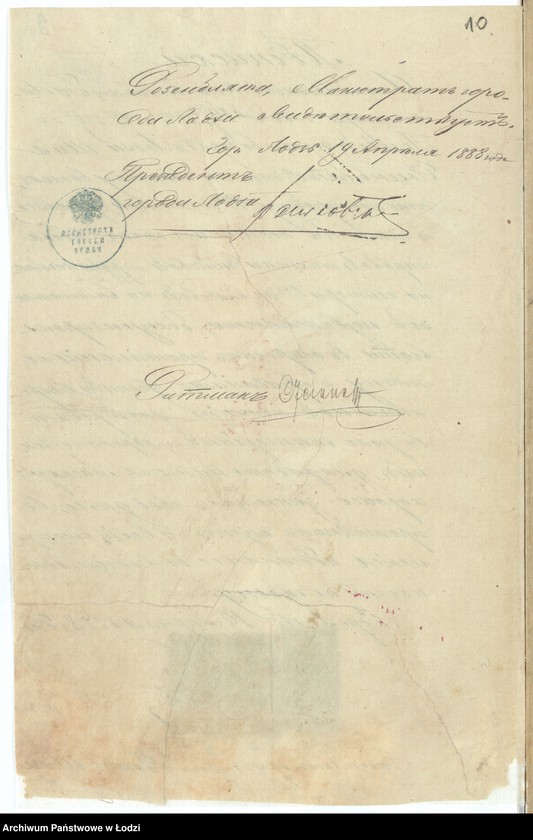 10
Розенблята, Магистратъ горо-
да Лодзи свидетельствуетъ.
Гор. Лодзь 19 Апреля 1888 года
Президентъ
города Лодзи
МАГИСТРАТА
ГОРОДА
ЛОДЗИ
Ратманъ
Archiwum Państwowe w Łodzi